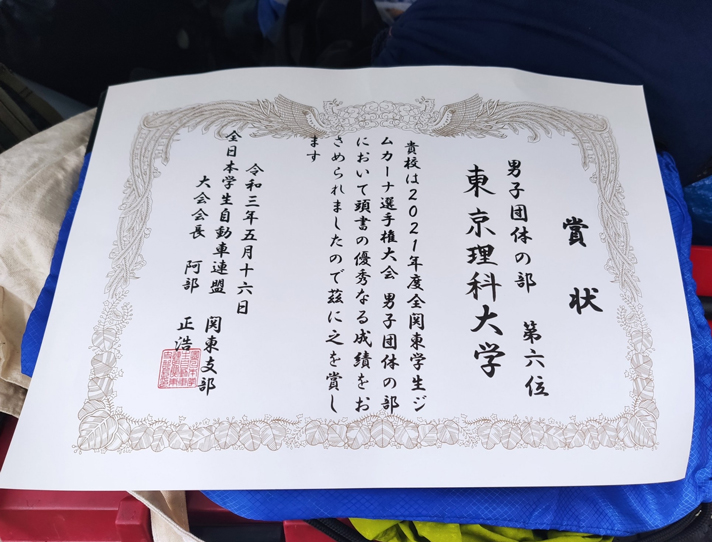 賞状
男子団体の部 第六位
東京理科大学
貴校は2021年度全関東学生ジ
ムカーナ選手権大会 男子団体の部
において頭書の優秀なる成績をお
さめられましたので茲に之を賞し
ます
令和三年五月十六日
全日本学生自動車連盟 関東支部
大会会長 阿部 正浩